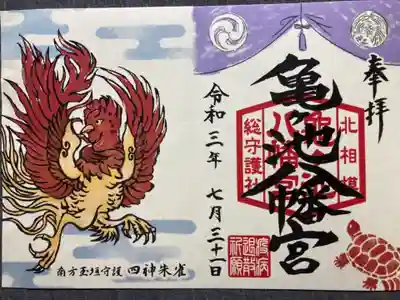 奉拝
亀ヶ池八幡宮
北相模
総守護社
疫病
退散
祈願
令和三年 七月三十一日
南方玉垣守護 四神朱雀